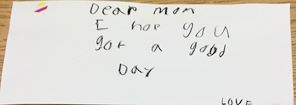 Dear mom
I hop you
got a good
Day
LOVE